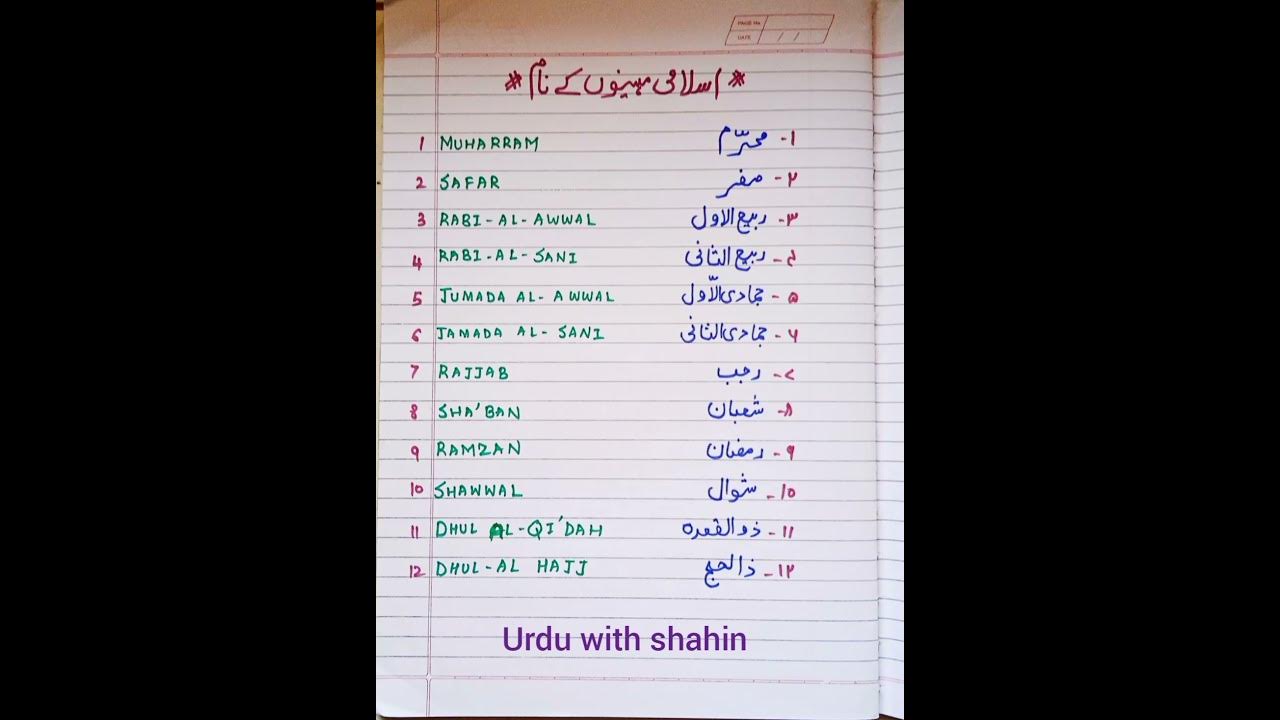 PAGE No
DATE / /
* اسلامی مہینوں کے نام *
1 MUHARRAM ۱- محرّم
2 SAFAR ۲- صفر
3 RABI-AL-AWWAL ۳- ربیع الاول
4 RABI-AL-SANI ۴- ربیع الثانی
5 JUMADA AL-AWWAL ۵- جمادی الاّول
6 JAMADA AL-SANI ۶- جمادی الثانی
7 RAJJAB ۷- رجب
8 SHA'BAN ۸- شعبان
9 RAMZAN ۹- رمضان
10 SHAWWAL ۱۰- شوال
11 DHUL AL-QI'DAH ۱۱- ذوالقعدہ
12 DHUL-AL HAJJ ۱۲- ذالحج
Urdu with shahin